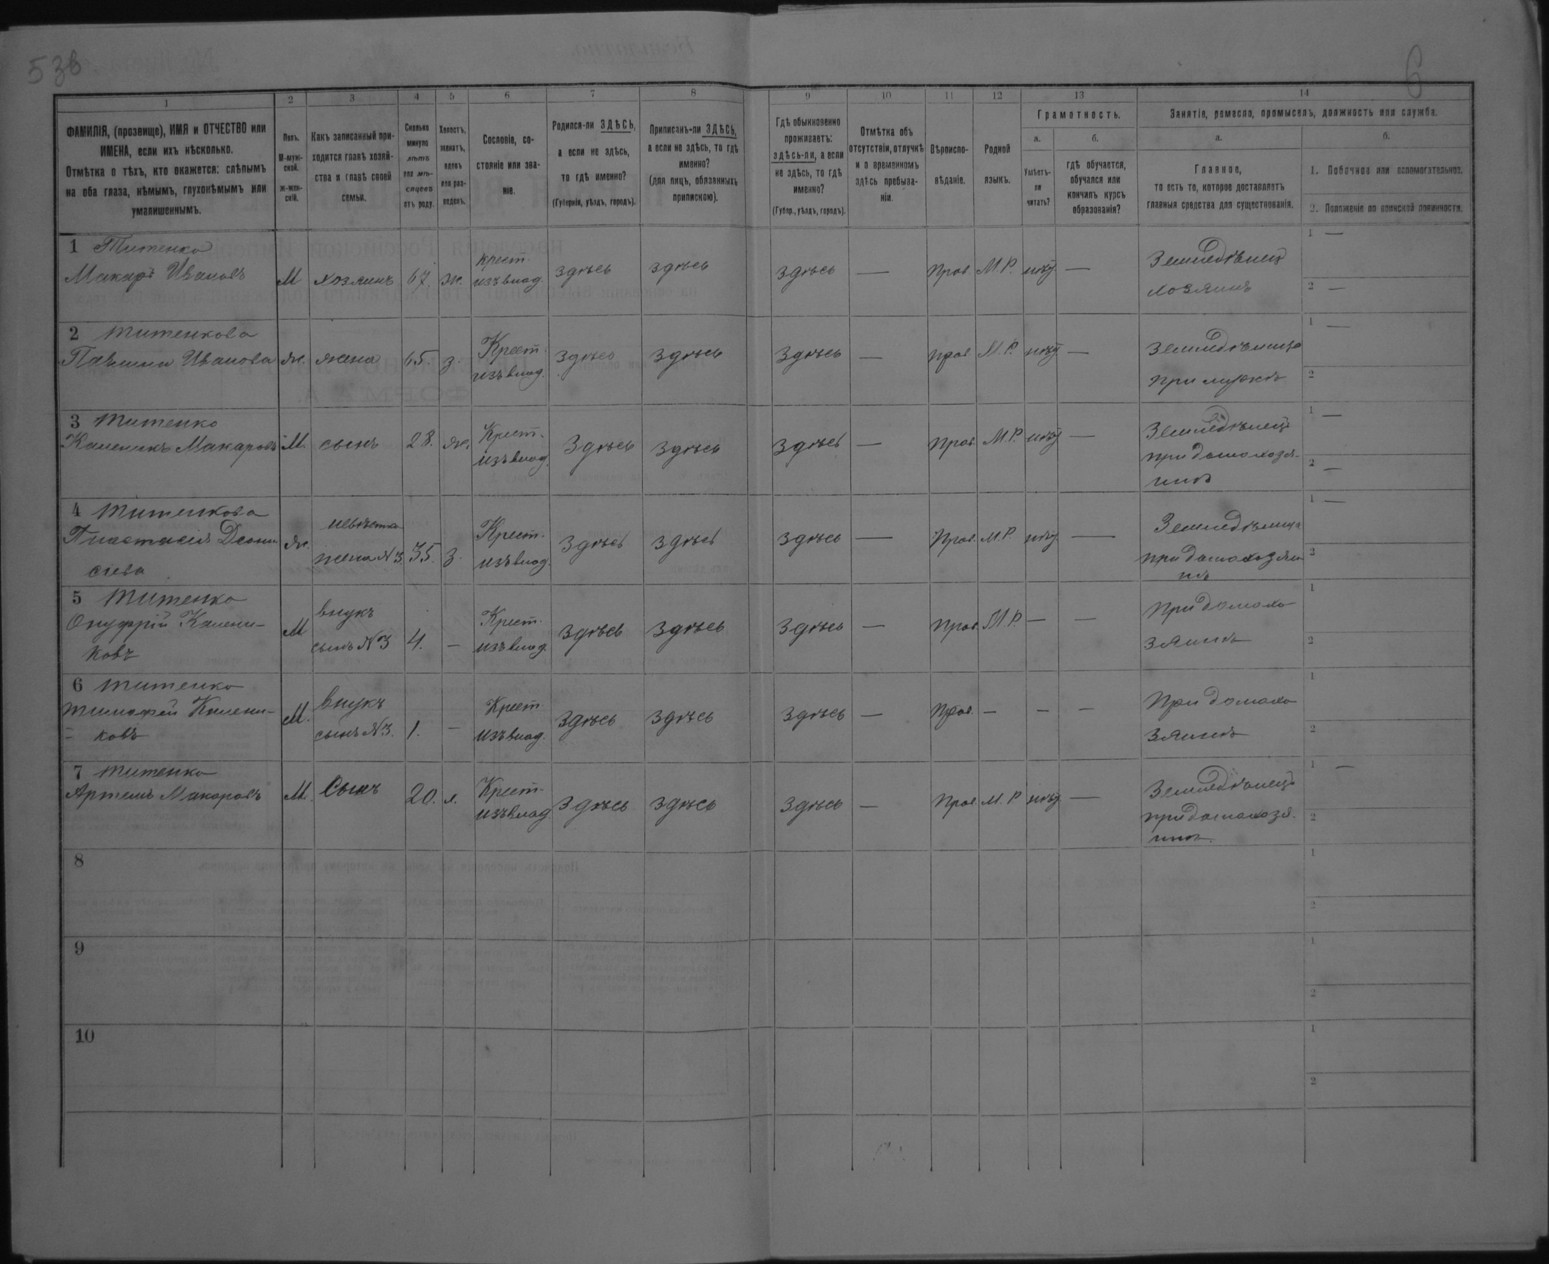 538
6
1 2 3 4 5 6 7 8 9 10 11 12 13 14
ФАМИЛІЯ, (прозвище), ИМЯ и ОТЧЕСТВО или
ИМЕНА, если ихъ нѣсколько.
Отмѣтка о тѣхъ, кто окажется: слѣпымъ
на оба глаза, нѣмымъ, глухонѣмымъ или
умалишеннымъ.
Полъ.
М-муж-
ской.
ж-жен-
скій.
Какъ записанный при-
ходится главѣ хозяй-
ства и главѣ своей
семьи.
Сколько
минуло
лѣтъ
или мѣ-
сяцевъ
отъ роду.
Холостъ,
женатъ,
вдовъ
или раз-
веденъ.
Сословіе, со-
стояніе или зва-
ніе.
Родился-ли ЗДѢСЬ,
а если не здѣсь,
то гдѣ именно?
(Губернія, уѣздъ, городъ).
Приписанъ-ли ЗДѢСЬ,
а если не здѣсь, то гдѣ
именно?
(для лицъ, обязанныхъ
припискою).
Гдѣ обыкновенно
проживаетъ:
здѣсь-ли, а если
не здѣсь, то гдѣ
именно?
(Губер., уѣздъ, городъ).
Отмѣтка объ
отсутствіи, отлучкѣ
и о временномъ
здѣсь пребыва-
ніи.
Вѣроиспо-
вѣданіе.
Родной
языкъ.
Грамотность.
а.
Умѣетъ-
ли
читать?
б.
гдѣ обучается,
обучался или
кончилъ курсъ
образованія?
Занятіе, ремесло, промыселъ, должность или служба.
а.
Главное,
то есть то, которое доставляетъ
главныя средства для существованія.
б.
1. Побочное или вспомогательное.
2. Положеніе по воинской повинности.
1 Титенко
Макаръ Ивановъ М хозяинъ 67 ж. крест. изъ влад. здѣсь здѣсь здѣсь — Прав. М.Р. нѣтъ —
Земледѣлецъ
хозяинъ
1 —
2 —
2 Титенкова
Ивановa ж. жена 65 з. Крест. изъ влад. здѣсь здѣсь здѣсь — прав. М.Р. нѣтъ —
Земледѣлица
при мужѣ
1 —
2
3 Титенко
Каленикъ Макаровъ М. сынъ 28. ж. Крест. изъ влад. Здѣсь здѣсь здѣсь — прав. М.Р. нѣтъ —
Земледѣлецъ
при домохозя-
инѣ
1 —
2 —
4 Титенкова
Анастасія Діони-
сіева ж. невѣстка жена №3 35. з. Крест. изъ влад. Здѣсь здѣсь здѣсь — Прав. М.Р. нѣтъ —
Земледѣлица
при домохозяи-
нѣ
1 —
2
5 Титенко
Онуфрій Калени-
ковъ М внукъ сынъ №3 4. — Крест. изъ влад. здѣсь здѣсь Здѣсь — прав. М.Р. — —
При домохо-
зяинѣ
1
2
6 Титенко
Тимофей Калени-
ковъ М. внукъ сынъ №3. 1. — Крест. изъ влад. здѣсь здѣсь здѣсь — Прав. — — —
При домохо-
зяинѣ
1
2
7 Титенко
Артемъ Макаровъ М. Сынъ 20. х. Крест. изъ влад. Здѣсь здѣсь Здѣсь — Прав. М.Р. нѣтъ —
Земледѣлецъ
при домохозя-
инѣ.
1 —
2
8
1
2
9
1
2
10
1
2